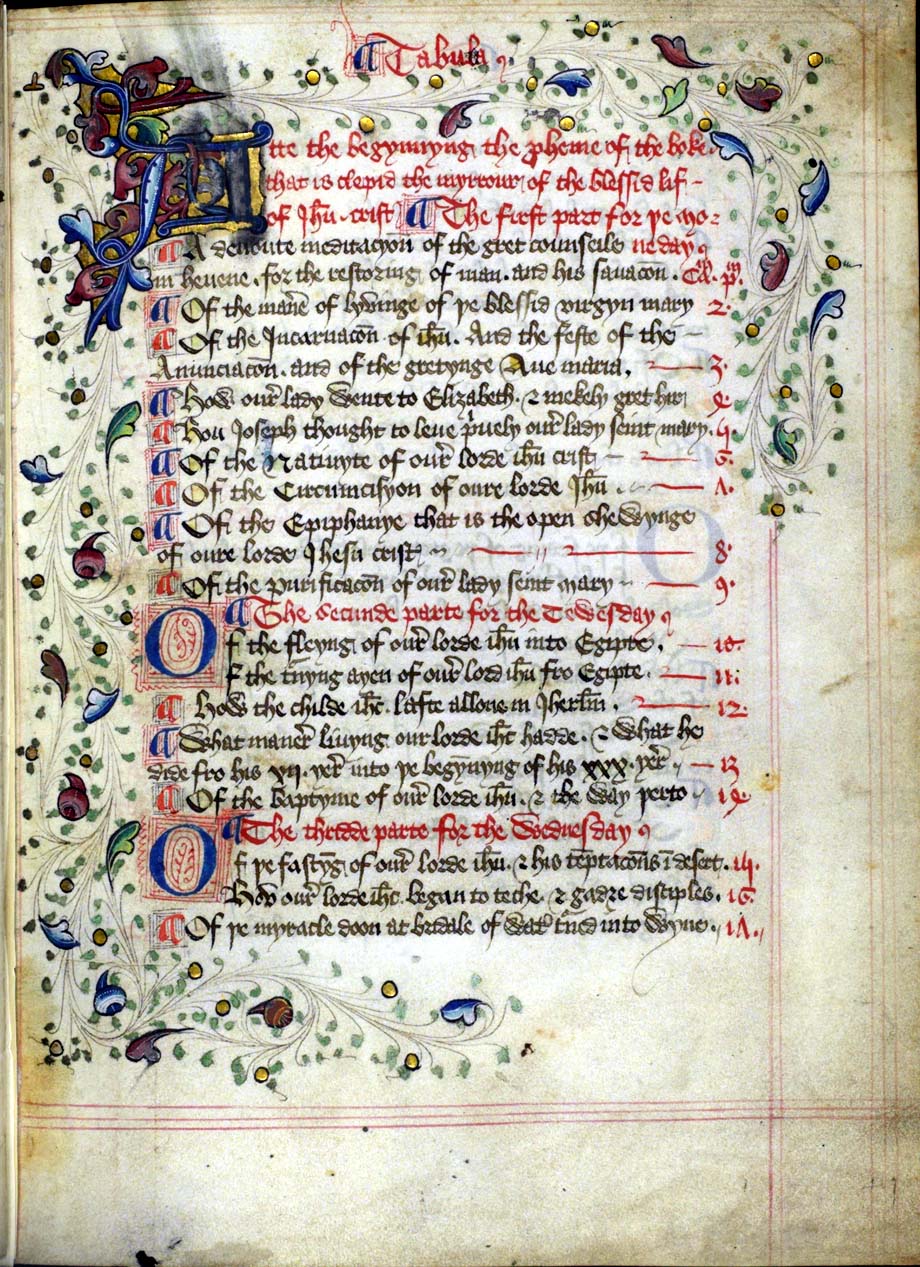 ¶ Tabula
Atte the begynnyng the pheme of the boke
that is clepid the myrrour of the blessid lif
of Jhu crist ¶ The first part for þe mo
¶ A deuoute meditacyon of the gret counseile neday
in heuene for the restoring of man and his sauacon. Ca. pm.
¶ Of the manere of lyvinge of þe blessid virgyn mary 2.
¶ Of the Incarnacon of ihu. And the feste of the
Anunciacon. and of the gretynge Aue maria. 3.
¶ How our lady wente to Elizabeth. & mekely gret hir 4.
¶ Hou Joseph thought to leue priuely our lady seint mary. 5.
¶ Of the Natiuyte of our lorde ihu crist 6.
¶ Of the Circumcisyon of oure lorde Jhu 7.
¶ Of the Epiphanye that is the open shewynge
of oure lorde Jhesu crist 8.
¶ Of the purificacon of our lady seint mary 9.
¶ The secunde parte for the Tewesday
Of the fleyng of our lorde ihu into Egipte. 10.
Of the tnyng ayen of our lord ihu fro Egipte. 11.
¶ How the childe ihc lafte allone in Jherlm. 12.
¶ What maner liuyng our lorde ihc hadde. & what he
dide fro his xii. yer into þe begynyng of his xxx. yer. 13
¶ Of the baptyme of our lorde ihu. & the way þerto 14
¶ The thridde parte for the Wednesday
Of þe fastyg of our lorde ihu. & his teptacons i desert. 15.
How our lorde ihc began to teche & gadre disciples. 16.
¶ Of þe myracle doon at bridale of wat tned into wyne. 17.